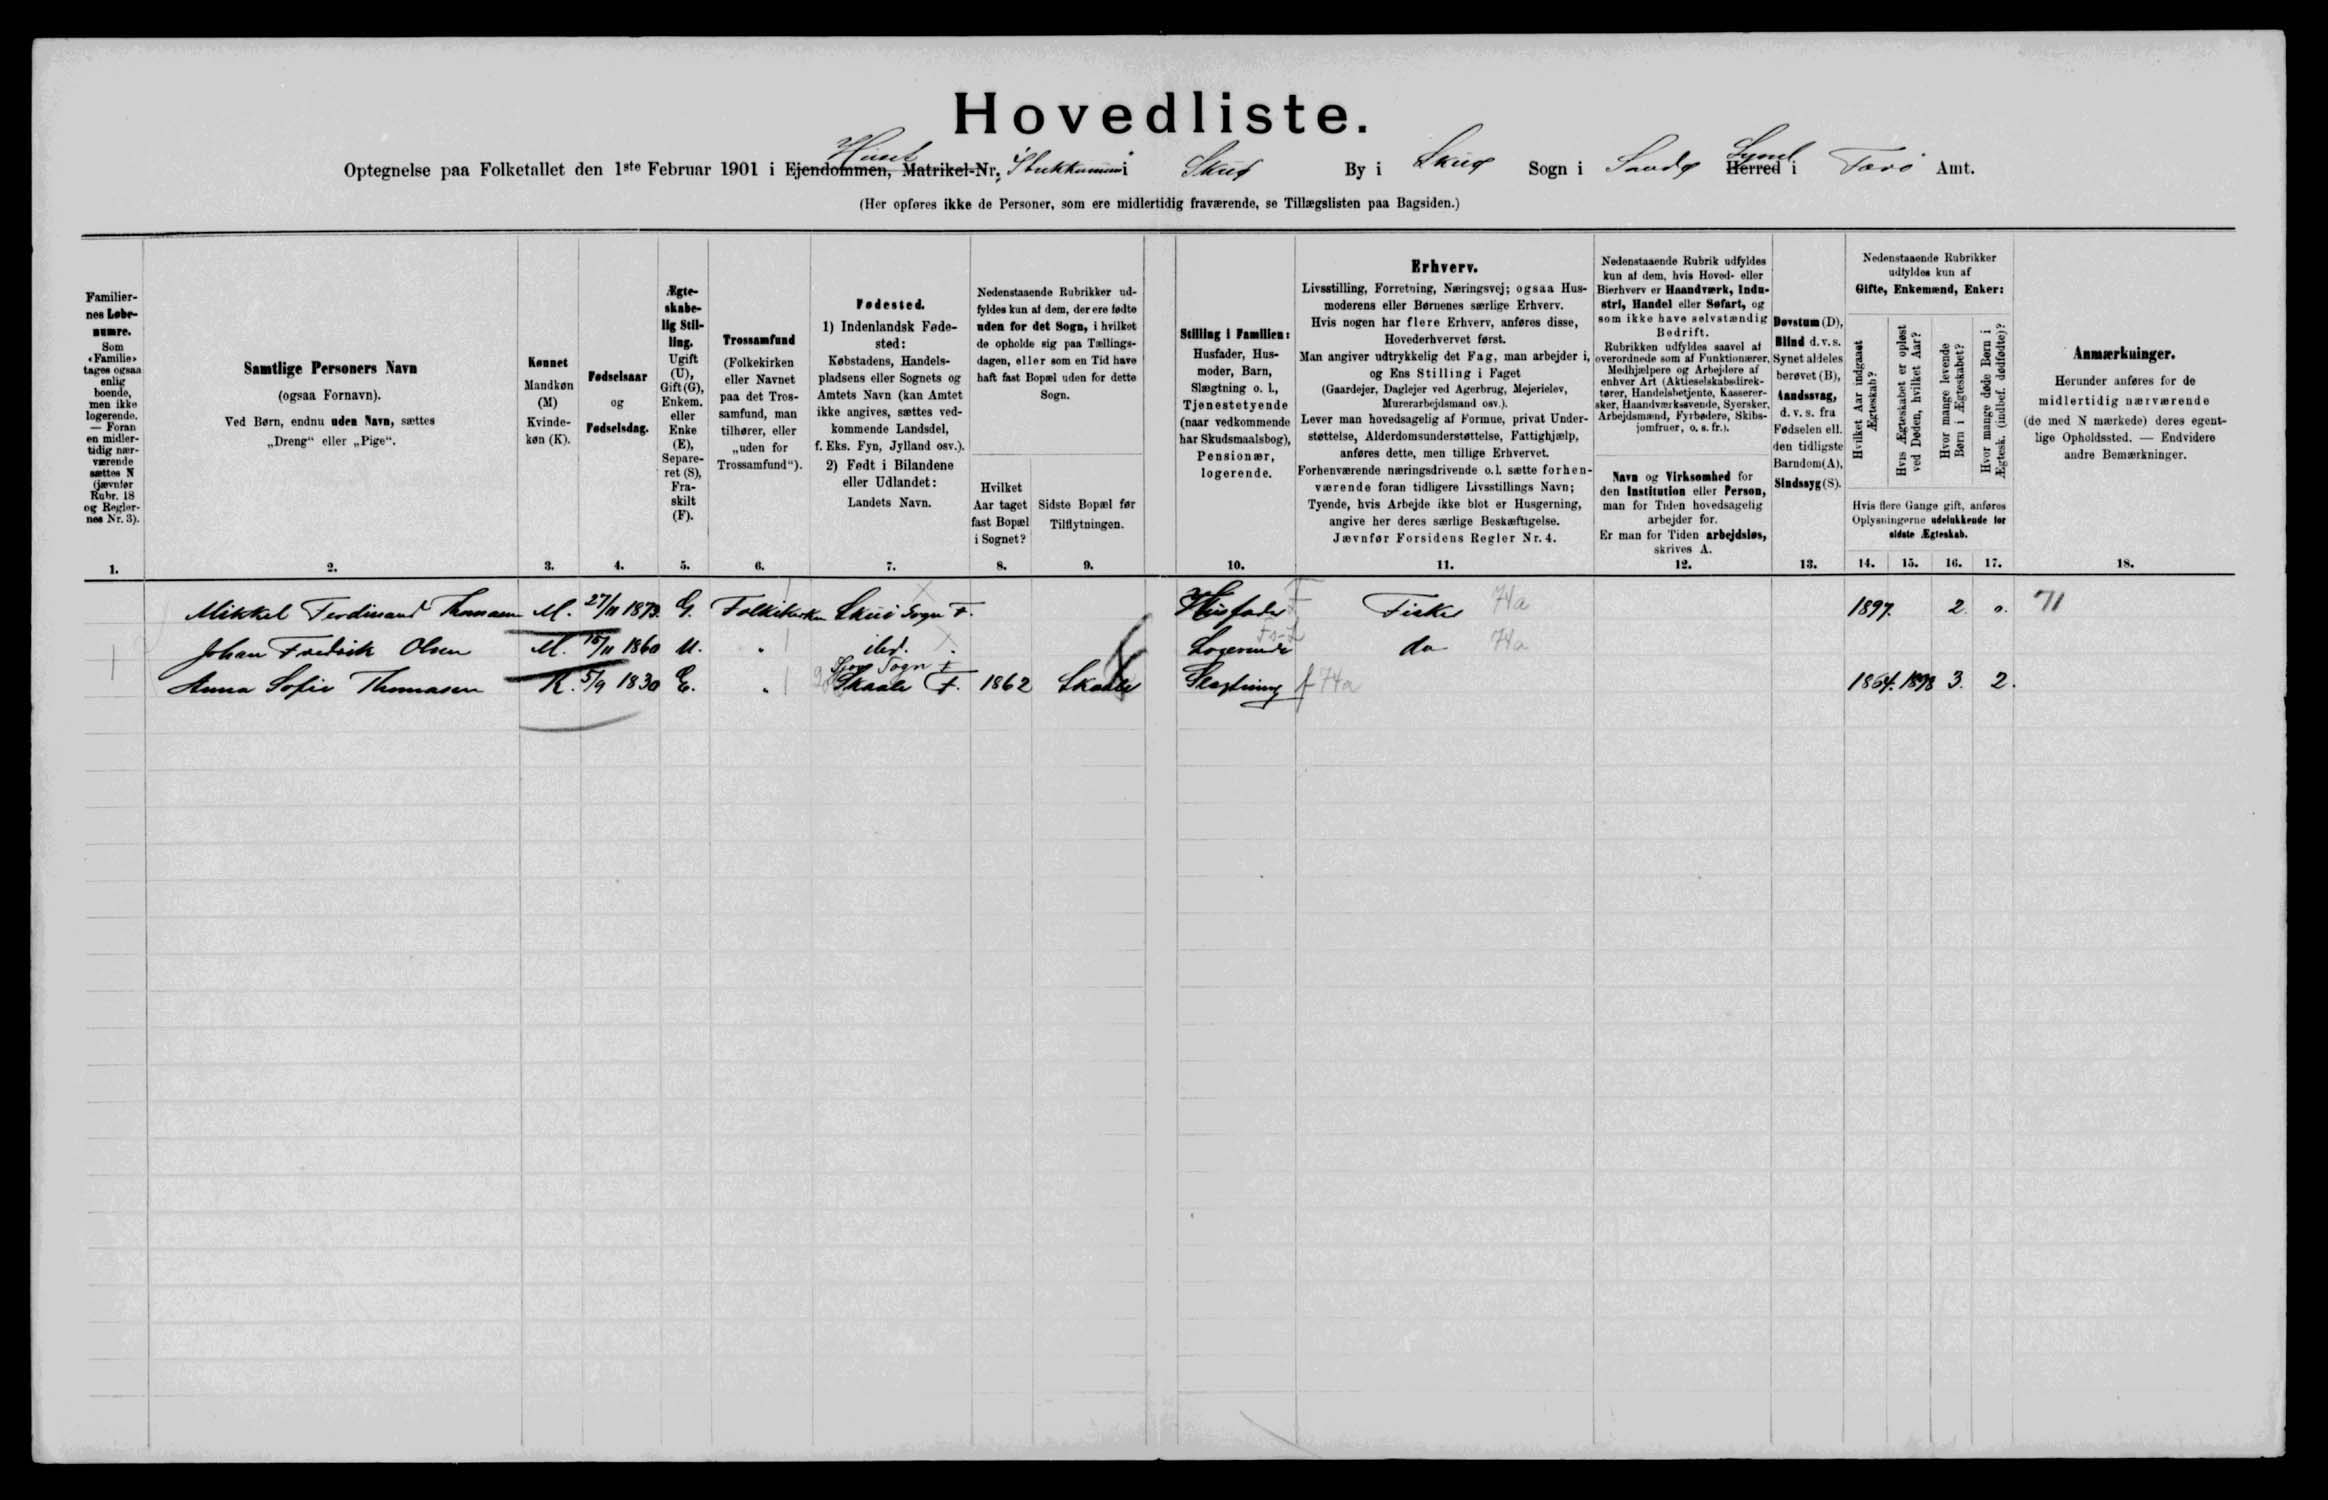 Hovedliste.
Huset
Optegnelse paa Folketallet den 1ste Februar 1901 i Ejendommen, Matrikel-Nr. i Skuø By i Skuø Sogn i Sandø Syssel Herred i Færø Amt.
(Her opføres ikke de Personer, som ere midlertidig fraværende, se Tillægslisten paa Bagsiden.)
Familier-
nes Løbe-
numre.
Som
«Familie»
tages ogsaa
enlig
boende,
men ikke
logerende.
— Foran
en midler-
tidig nær-
værende
sættes N
(jævnfør
Rubr. 18
og Regler-
nes Nr. 3).
1.
Samtlige Personers Navn
(ogsaa Fornavn).
Ved Børn, endnu uden Navn, sættes
„Dreng“ eller „Pige“.
2.
Kønnet
Mandkøn
(M)
Kvinde-
køn (K).
3.
Fødselsaar
og
Fødselsdag.
4.
Ægte-
skabe-
lig Stil-
ling.
Ugift
(U),
Gift (G),
Enkem.
eller
Enke
(E),
Separe-
ret (S),
Fra-
skilt
(F).
5.
Trossamfund
(Folkekirken
eller Navnet
paa det Tros-
samfund, man
tilhører, eller
„uden for
Trossamfund“).
6.
Fødested.
1) Indenlandsk Føde-
sted:
Købstadens, Handels-
pladsens eller Sognets og
Amtets Navn (kan Amtet
ikke angives, sættes ved-
kommende Landsdel,
f. Eks. Fyn, Jylland osv.).
2) Født i Bilandene
eller Udlandet:
Landets Navn.
7.
Nedenstaaende Rubrikker ud-
fyldes kun af dem, der ere fødte
uden for det Sogn, i hvilket
de opholde sig paa Tællings-
dagen, eller som en Tid have
haft fast Bopæl uden for dette
Sogn.
Hvilket
Aar taget
fast Bopæl
i Sognet?
8.
Sidste Bopæl før
Tilflytningen.
9.
Stilling i Familien:
Husfader, Hus-
moder, Barn,
Slægtning o. l.,
Tjenestetyende
(naar vedkommende
har Skudsmaalsbog),
Pensionær,
logerende.
10.
Erhverv.
Livsstilling, Forretning, Næringsvej; ogsaa Hus-
moderens eller Børnenes særlige Erhverv.
Hvis nogen har flere Erhverv, anføres disse,
Hovederhvervet først.
Man angiver udtrykkelig det Fag, man arbejder i,
og Ens Stilling i Faget
(Gaardejer, Daglejer ved Agerbrug, Mejerielev,
Murerarbejdsmand osv.).
Lever man hovedsagelig af Formue, privat Under-
støttelse, Alderdomsunderstøttelse, Fattighjælp,
anføres dette, men tillige Erhvervet.
Forhenværende næringsdrivende o. l. sætte forhen-
værende foran tidligere Livsstillings Navn;
Tyende, hvis Arbejde ikke blot er Husgerning,
angive her deres særlige Beskæftigelse.
Jævnfør Forsidens Regler Nr. 4.
11.
Nedenstaaende Rubrik udfyldes
kun af dem, hvis Hoved- eller
Bierhverv er Haandværk, Indu-
stri, Handel eller Søfart, og
som ikke have selvstændig
Bedrift.
Rubrikken udfyldes saavel af
overordnede som af Funktionærer,
Medhjælpere og Arbejdere af
enhver Art (Aktieselskabsdirek-
tører, Handelsbetjente, Kasserer-
sker, Haandværkssvende, Syersker,
Arbejdsmænd, Fyrbødere, Skibs-
jomfruer, o. s. fr.).
Navn og Virksomhed for
den Institution eller Person,
man for Tiden hovedsagelig
arbejder for.
Er man for Tiden arbejdsløs,
skrives A.
12.
Døvstum (D),
Blind d. v. s.
Synet aldeles
berøvet (B),
Aandssvag,
d. v. s. fra
Fødselen ell.
den tidligste
Barndom (A),
Sindssyg (S).
13.
Nedenstaaende Rubrikker
udfyldes kun af
Gifte, Enkemænd, Enker:
Hvilket Aar indgaaet
Ægteskab?
Hvis Ægteskabet er opløst
ved Døden, hvilket Aar?
Hvor mange levende
Børn i Ægteskabet?
Hvor mange døde Børn i
Ægtesk. (indbef. dødfødte)?
Hvis flere Gange gift, anføres
Oplysningerne udelukkende for
sidste Ægteskab.
14. 15. 16. 17.
Anmærkninger.
Herunder anføres for de
midlertidig nærværende
(de med N mærkede) deres egent-
lige Opholdssted. — Endvidere
andre Bemærkninger.
18.
Mikkel Ferdinand Thomasen M. 27/11 1873. G. Folkekirken Skuø Sogn F. Husfader F Fisker 74a 1897. 2. 0. 71
Johan Fredrik Olsen M. 15/11 1860 U. " ibd. Logerende do 74a
Sogn F
Anna Sofie Thomasen K. 5/9 1830 E. " Skaale F. 1862 Skaale Slægtning f 74a 1864. 1898 3. 2.